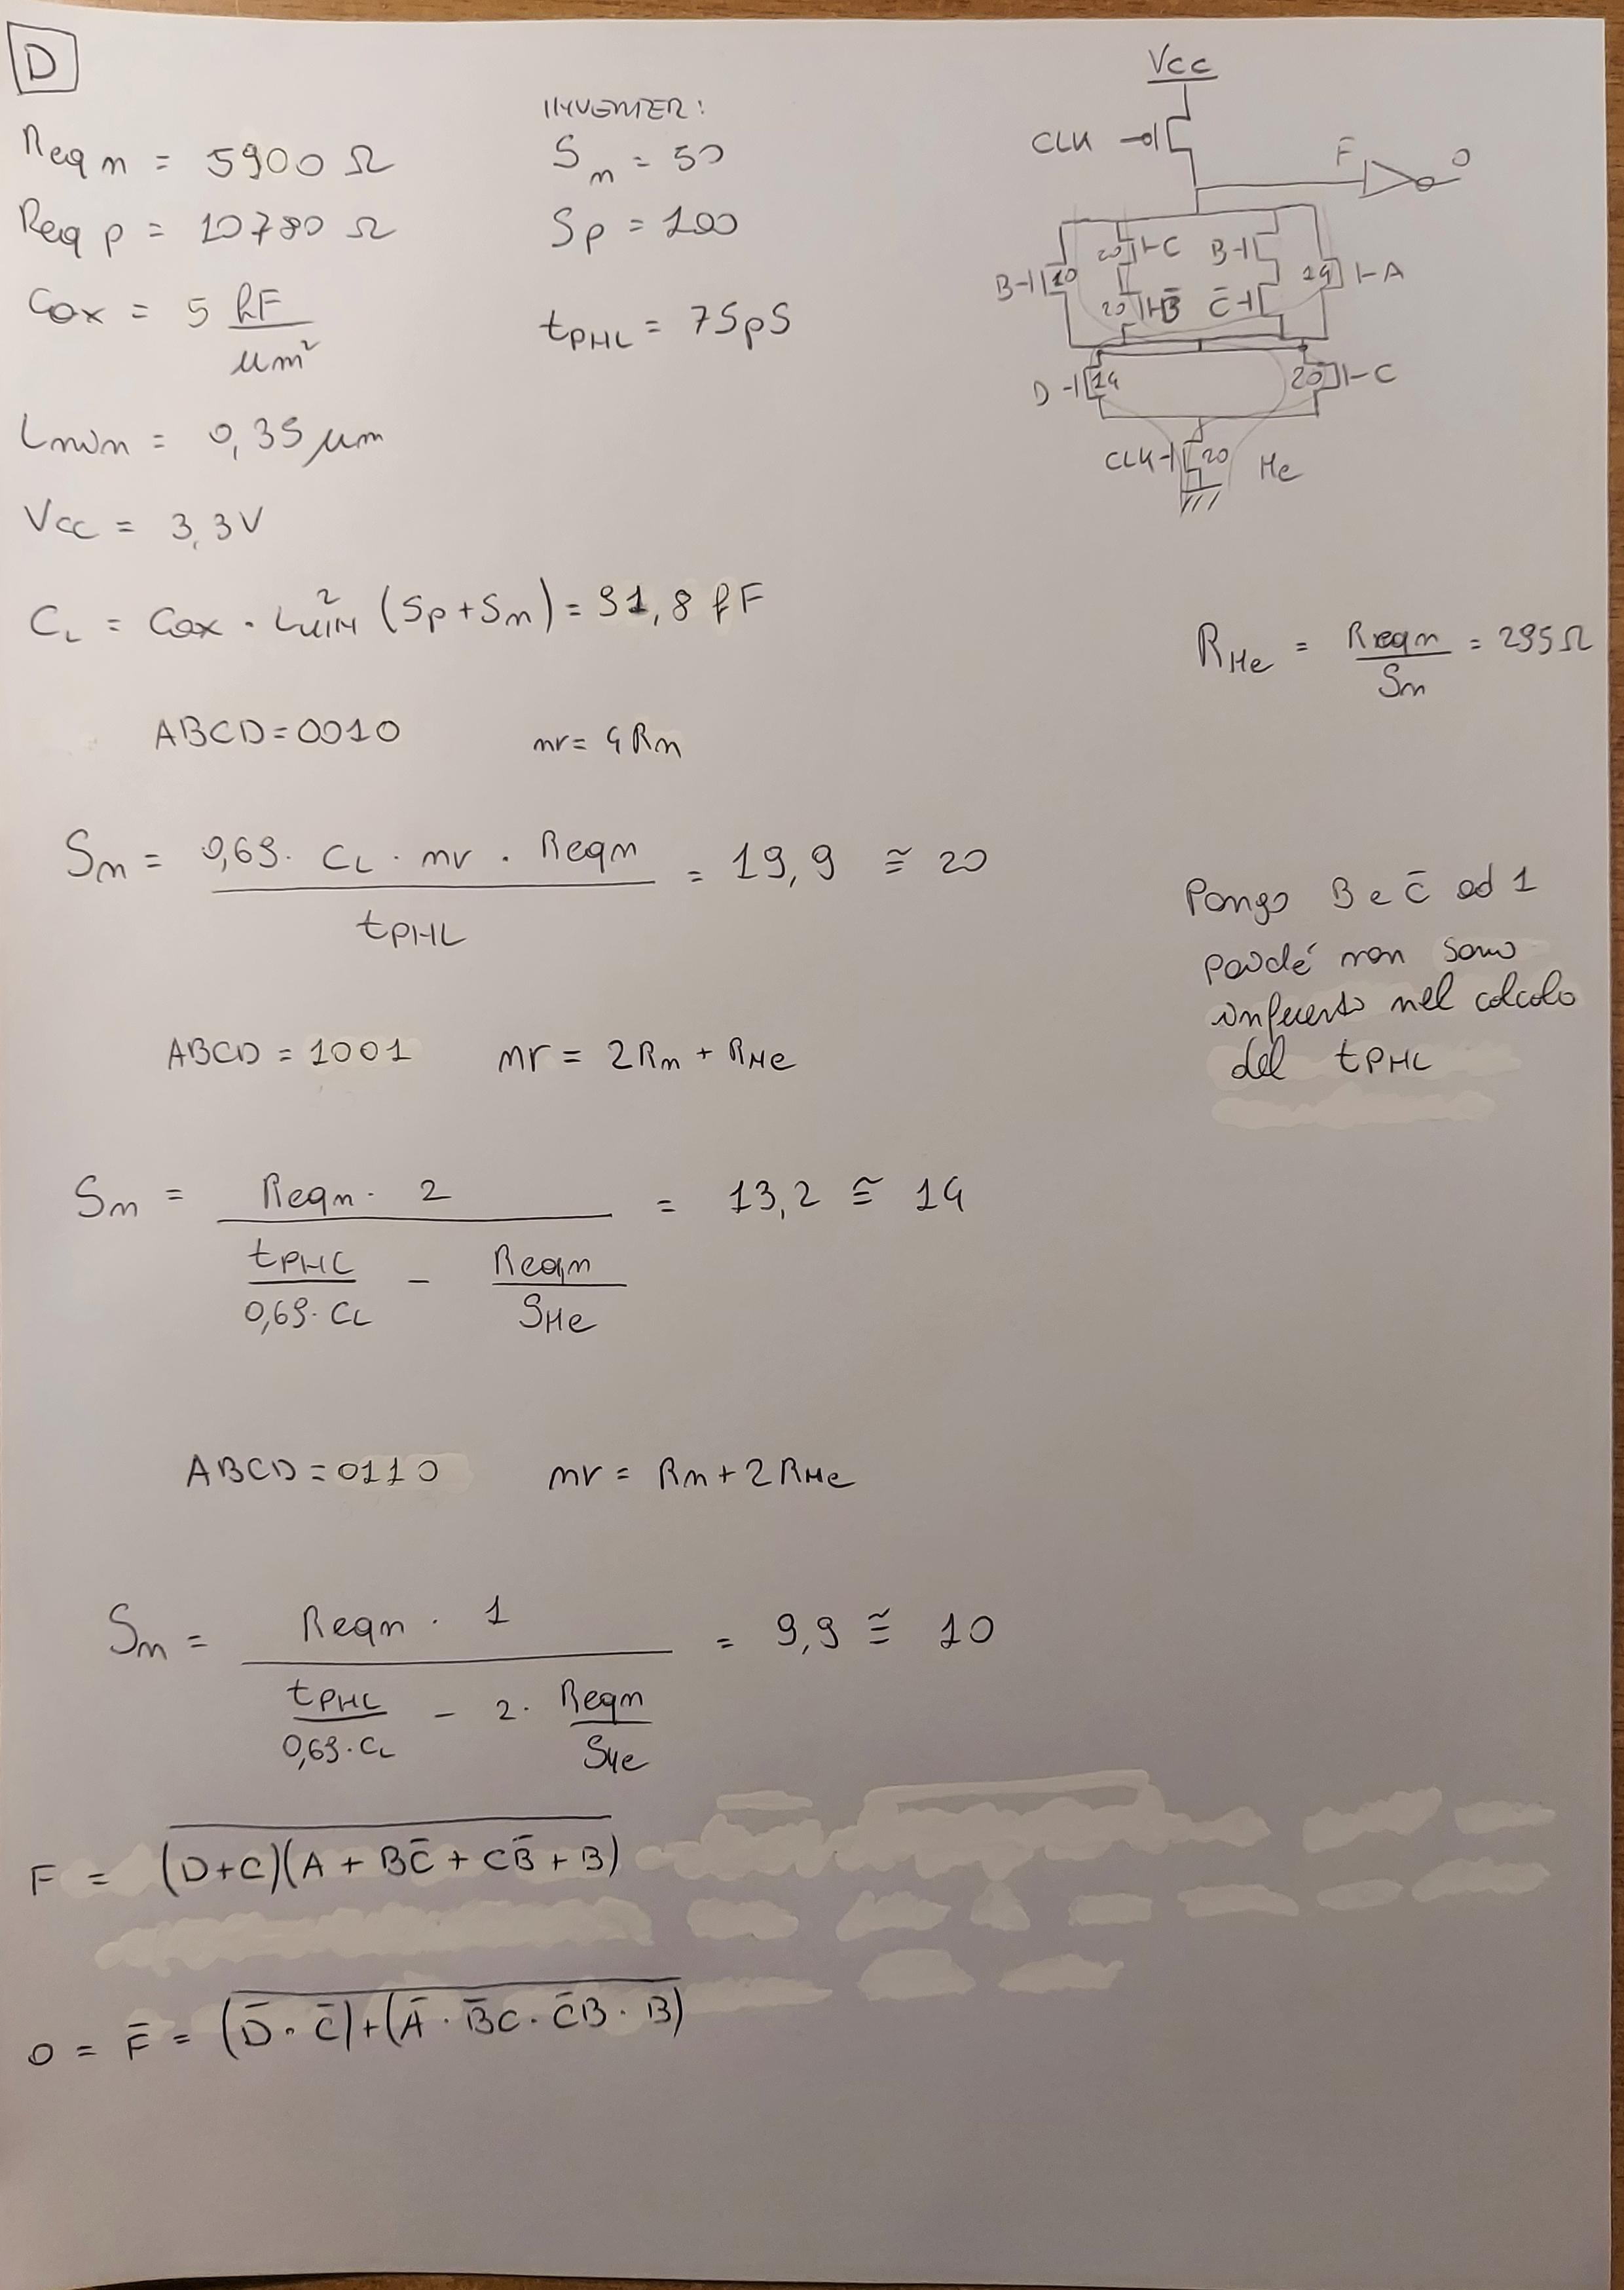 D
Reqn = 5900 Ω
Reqp = 10780 Ω
Cox = 5 fF/μm²
Lmin = 0,35 μm
Vcc = 3,3V
INVERTER:
Sn = 50
Sp = 100
tPHL = 75pS
Vcc
CLK
F̄
O
B 10
20 C
B
14 A
20 B̄
C̄
D 14
20 C
CLK 20 Me
CL = Cox · LMIN² (Sp+Sn) = 91,8 fF
RMe = Reqn/Sn = 295Ω
ABCD=0010 nr= 4Rn
Sn = 0,69 · CL · nr · Reqn / tPHL = 19,9 ≅ 20
Pongo B e C̄ ad 1
poiché non sono
nel calcolo
del tPHL
ABCD = 1001 nr = 2Rn + RMe
Sn = Reqn · 2 / (tPHL/0,69·CL − Reqn/SMe) = 13,2 ≅ 14
ABCD=0110 nr = Rn+2RMe
Sn = Reqn · 1 / (tPHL/0,69·CL − 2· Reqn/SMe) = 9,9 ≅ 10
F = \overline{(D+C)(A + BC̄ + CB̄ + B)}
O = F̄ = \overline{(D̄·C̄)+(Ā·B̄C·C̄B·B)}